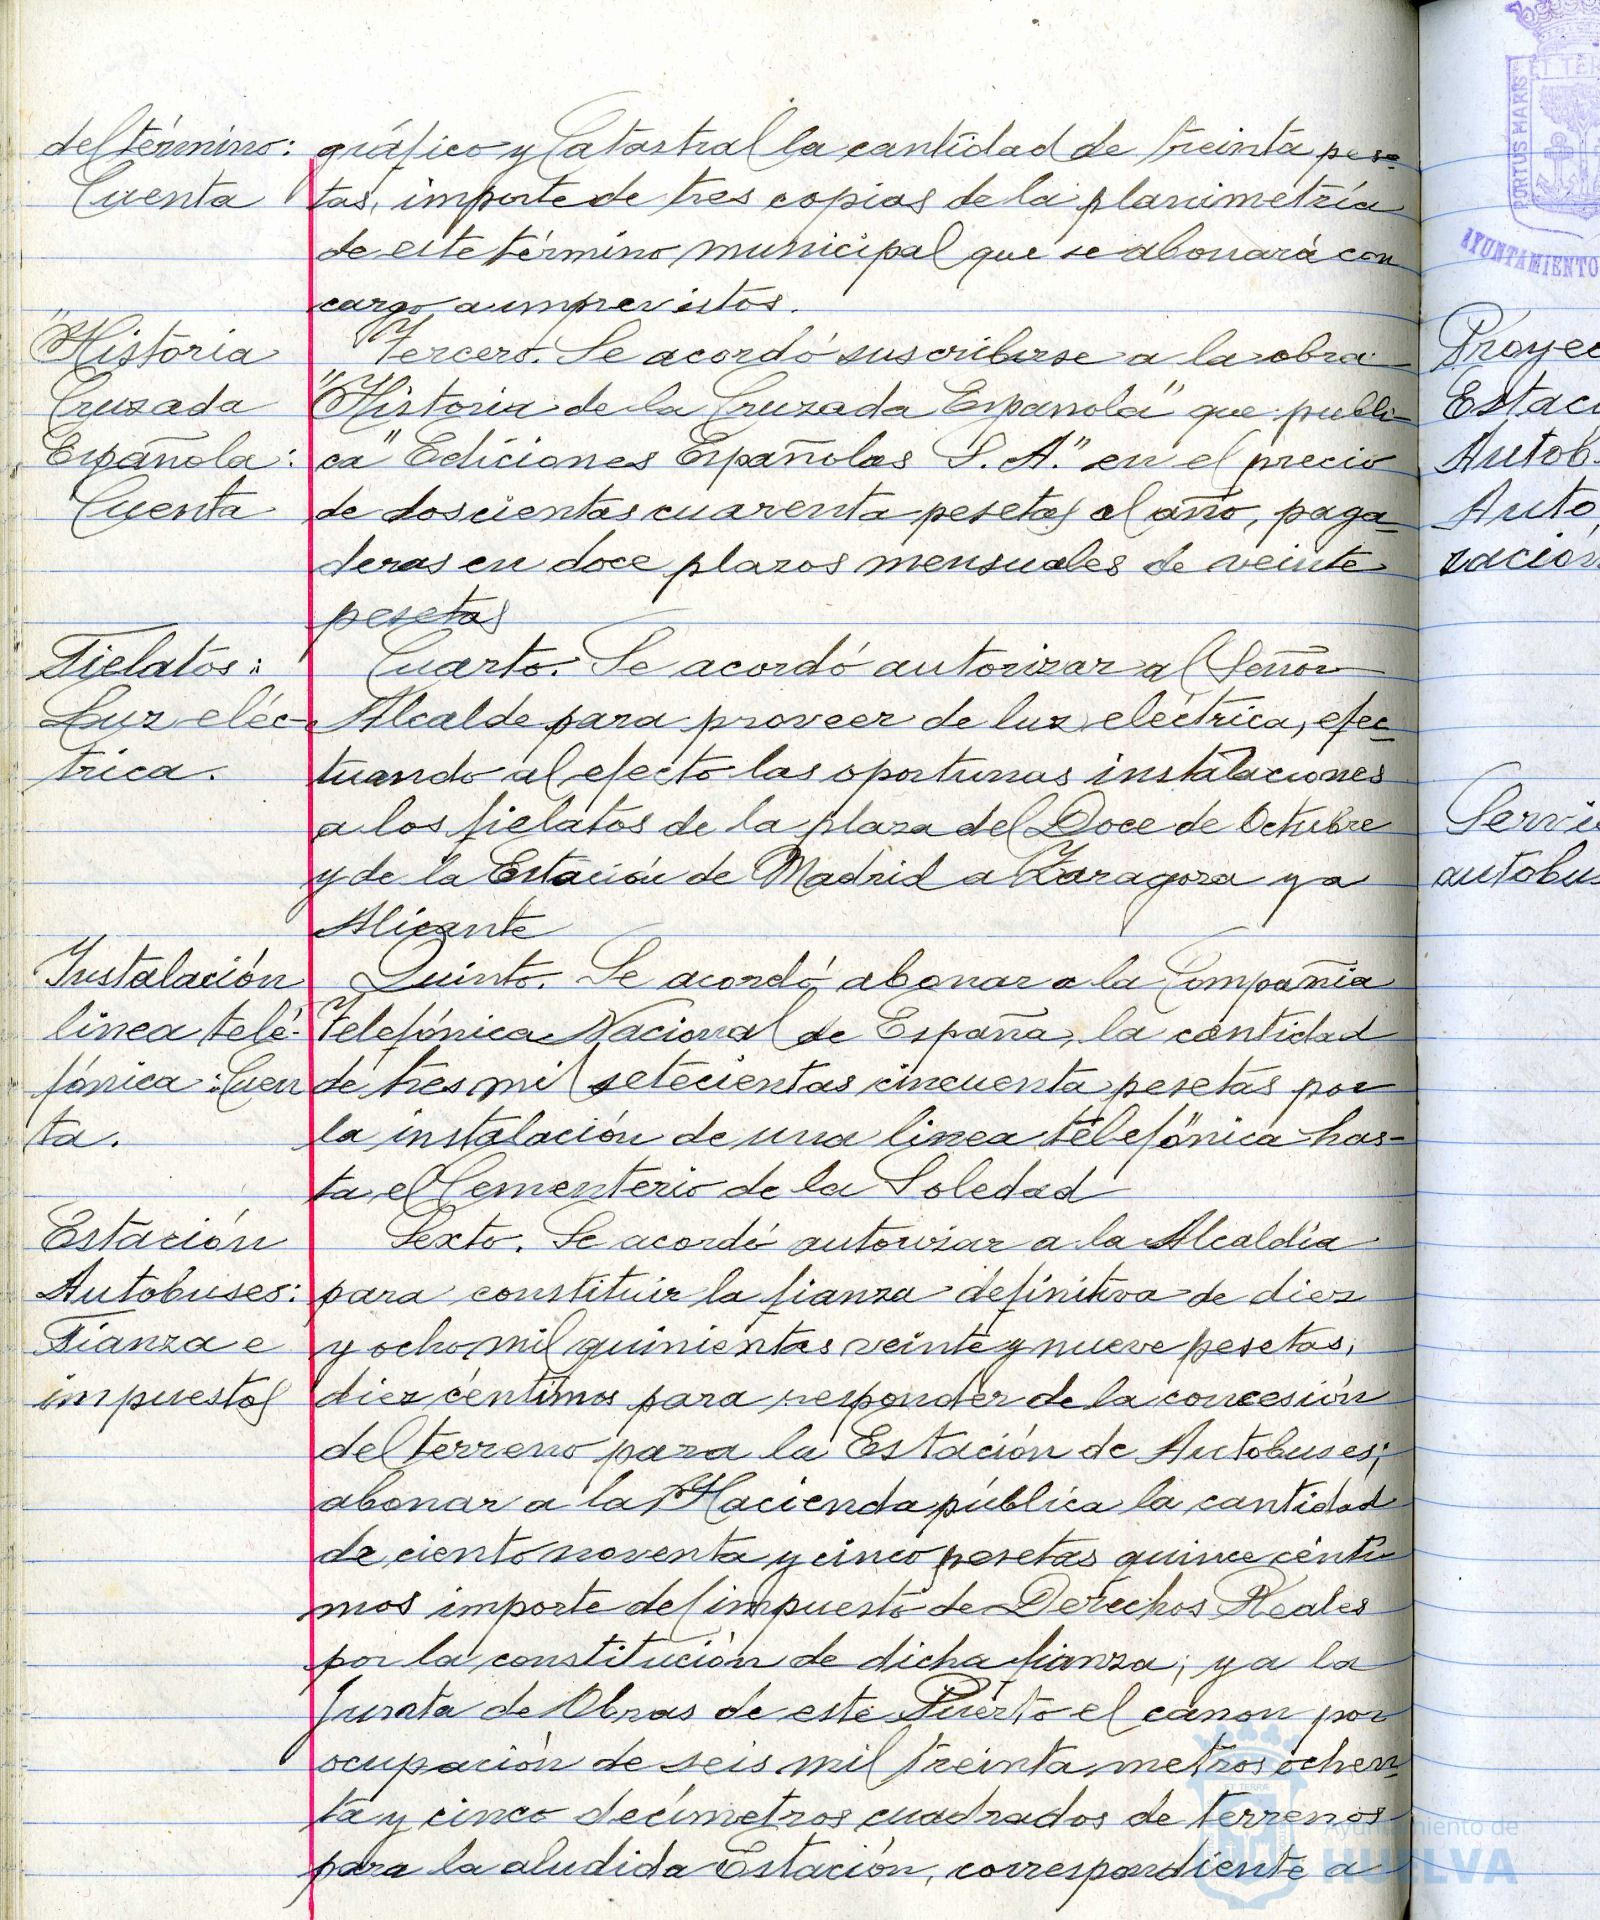 del término:
Cuenta
gráfico y Catastral la cantidad de treinta pese-
tas, importe de tres copias de la planimetría
de este término municipal que se abonará con
cargo a imprevistos.
"Historia
Cruzada
Española:
Cuenta
Tercero. Se acordó suscribirse a la obra
"Historia de la Cruzada Española" que publi-
ca "Ediciones Españolas S.A." en el precio
de doscientas cuarenta pesetas al año, paga-
deras en doce plazos mensuales de veinte
pesetas
Fielatos:
Luz eléc-
trica.
Cuarto. Se acordó autorizar al Señor
Alcalde para proveer de luz eléctrica, efec-
tuando al efecto las oportunas instalaciones
a los fielatos de la plaza del Doce de Octubre
y de la Estación de Madrid a Zaragoza y a
Alicante
Instalación
linea tele-
fónica: Cuen
ta.
Quinto. Se acordó abonar a la Compañia
Telefónica Nacional de España, la cantidad
de tres mil setecientas cincuenta pesetas por
la instalación de una linea telefónica has-
ta el Cementerio de la Soledad
Estación
Autobuses:
Fianza e
impuestos
Sexto. Se acordó autorizar a la Alcaldía
para constituir la fianza definitiva de diez
y ocho mil quinientas veinte y nueve pesetas,
diez céntimos para responder de la concesión
del terreno para la Estación de Autobuses;
abonar a la Hacienda pública la cantidad
de ciento noventa y cinco pesetas quince cénti-
mos importe del impuesto de Derechos Reales
por la constitución de dicha fianza; y a la
Junta de Obras de este Puerto el canon por
ocupación de seis mil treinta metros ochen-
ta y cinco decímetros cuadrados de terrenos
para la aludida Estación, correspondiente a
PORTUS MARIS
ET TERR
AYUNTAMIENTO
Proyec
Estaci
Autob.
Auto
zación
Servi
autobus
ET TERRÆ
Ayuntamiento de
HUELVA